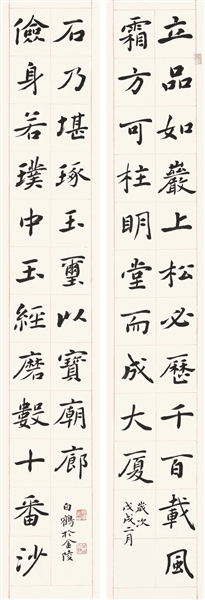 立品如巖上松必歷千百載風
霜方可柱明堂而成大厦
歲次
戊戌二月
儉身若璞中玉經磨數十番沙
石乃堪琢玉璽以寶廟廊
白鶴於金陵